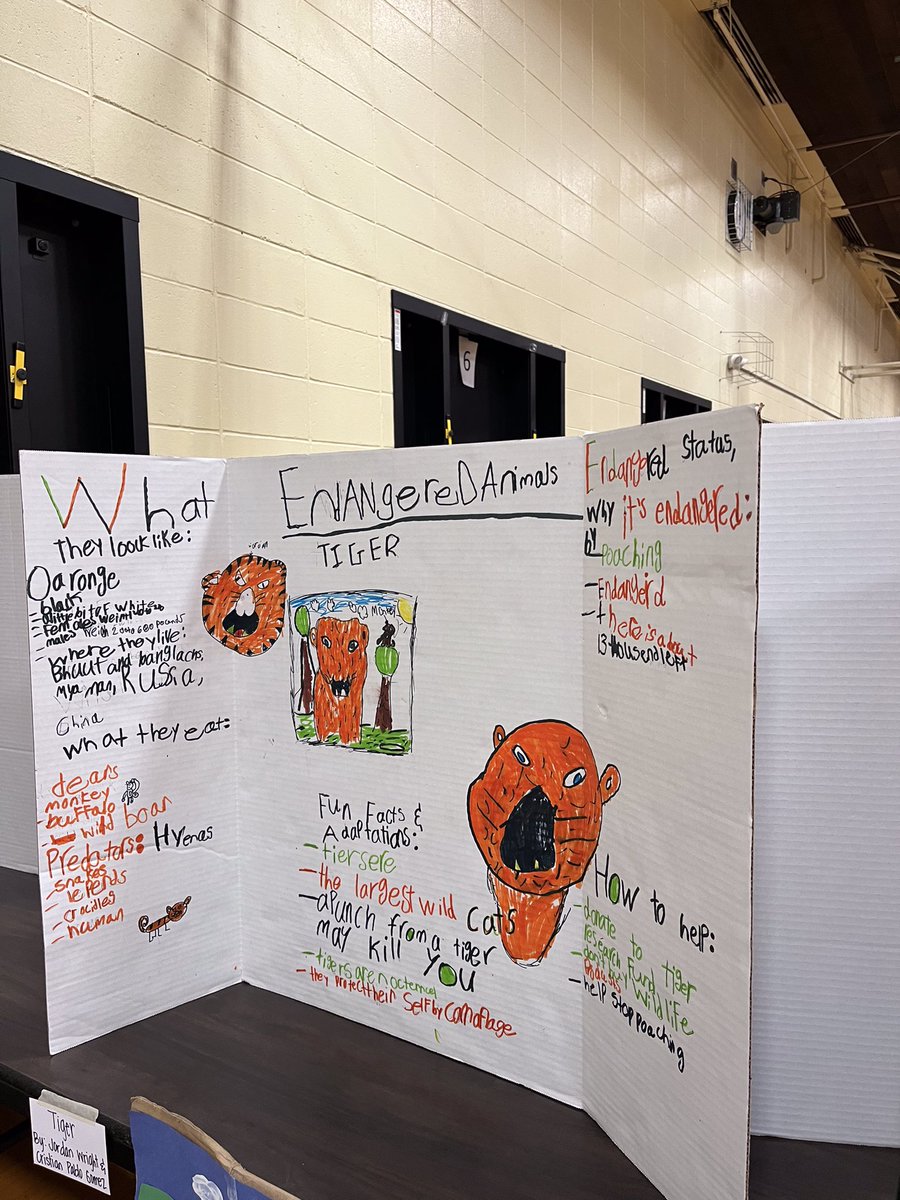 6
What
They look like:
Oaronge
black
little bit of white
Females weim
males weigh 200 to 600 pounds
where they live:
Bhuut and banglachs,
mya man, Russia,
China
what they eat:
dears
monkey
buffalo
wild boar
Predators: Hyenas
snakes
lepends
crocidles
human
ENdANgereDANimals
TIGER
Fun Facts &
Adaptations:
- tiersere
- the largest wild cats
- a punch from a tiger
may kill you
- tigers are
- they protect their self by camoflage
Endangered status,
why it's endangered:
by poaching
- Endangerd
- there is about
13 thousend left
How to help:
- donate to tiger
research fund
wild life
- help stop poaching
Tiger
By: Jordan Wright &
Cristian Pablo Gomez